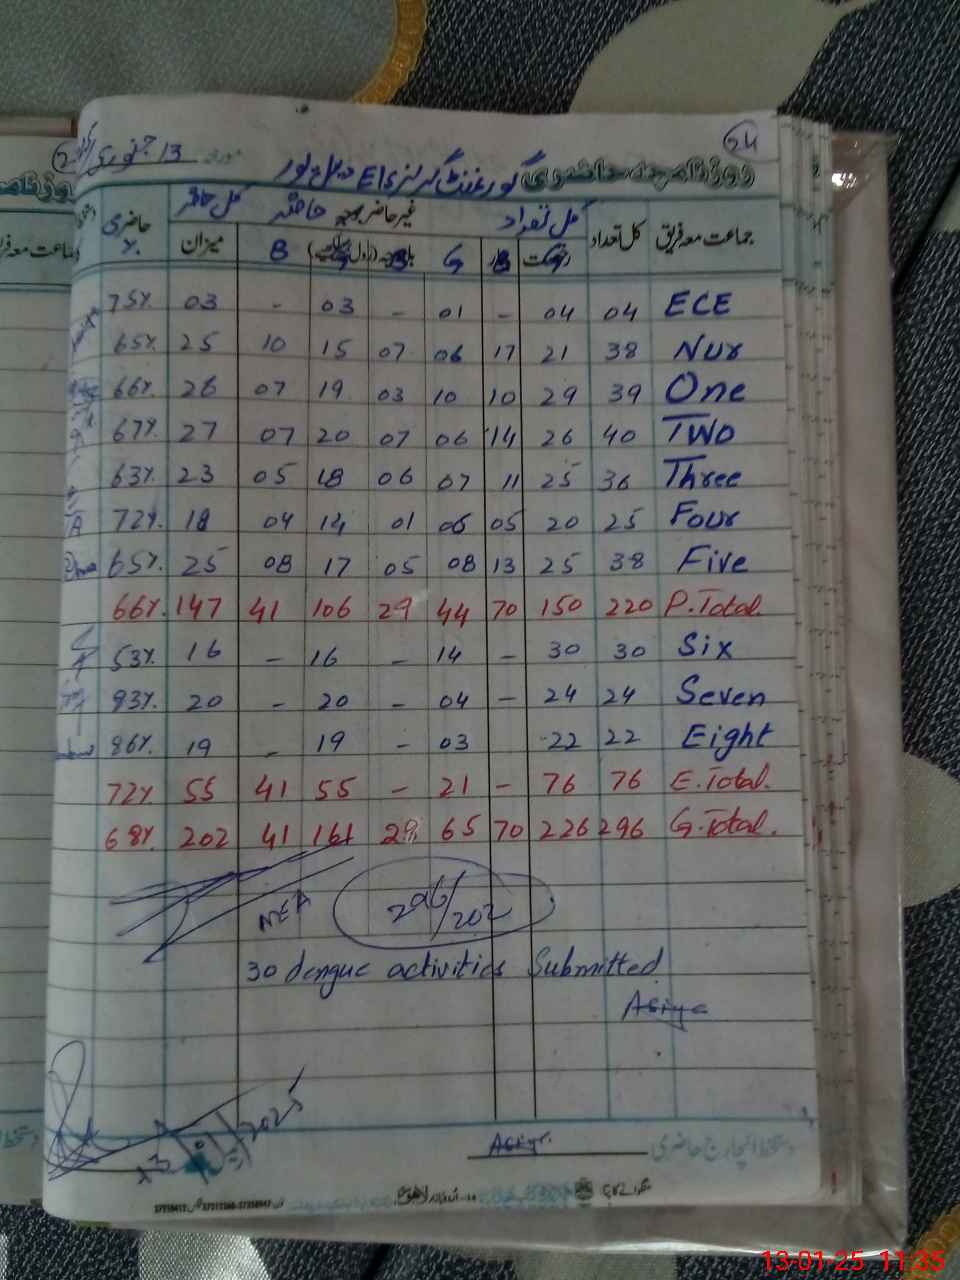 24
روزنامچہ حاضری گورنمنٹ گرلز E/s
13 جنوری
جماعت معہ فریق کل تعداد کل تعداد غیر حاضر حاضر کل حاضر حاضری %
G B G B G B میزان
ECE 04 04 - 01 - 03 - 03 75%
Nur 38 21 17 06 07 15 10 25 65%
One 39 29 10 10 03 19 07 26 66%
Two 40 26 14 06 07 20 07 27 67%
Three 36 25 11 07 06 18 05 23 63%
Four 25 20 05 06 01 14 04 18 72%
Five 38 25 13 08 05 17 08 25 65%
P.Total 220 150 70 44 29 106 41 147 66%
Six 30 30 - 14 - 16 - 16 53%
Seven 24 24 - 04 - 20 - 20 83%
Eight 22 22 03 - 19 - 19 86%
E.Total. 76 76 - 21 - 55 41 55 72%
G.Total. 296 226 70 65 29 161 41 202 68%
MEA 296/202
30 dengue activities Submitted
Asiya
13/01/2025
دستخط انچارج حاضری Asiya
13-01-25 11:35